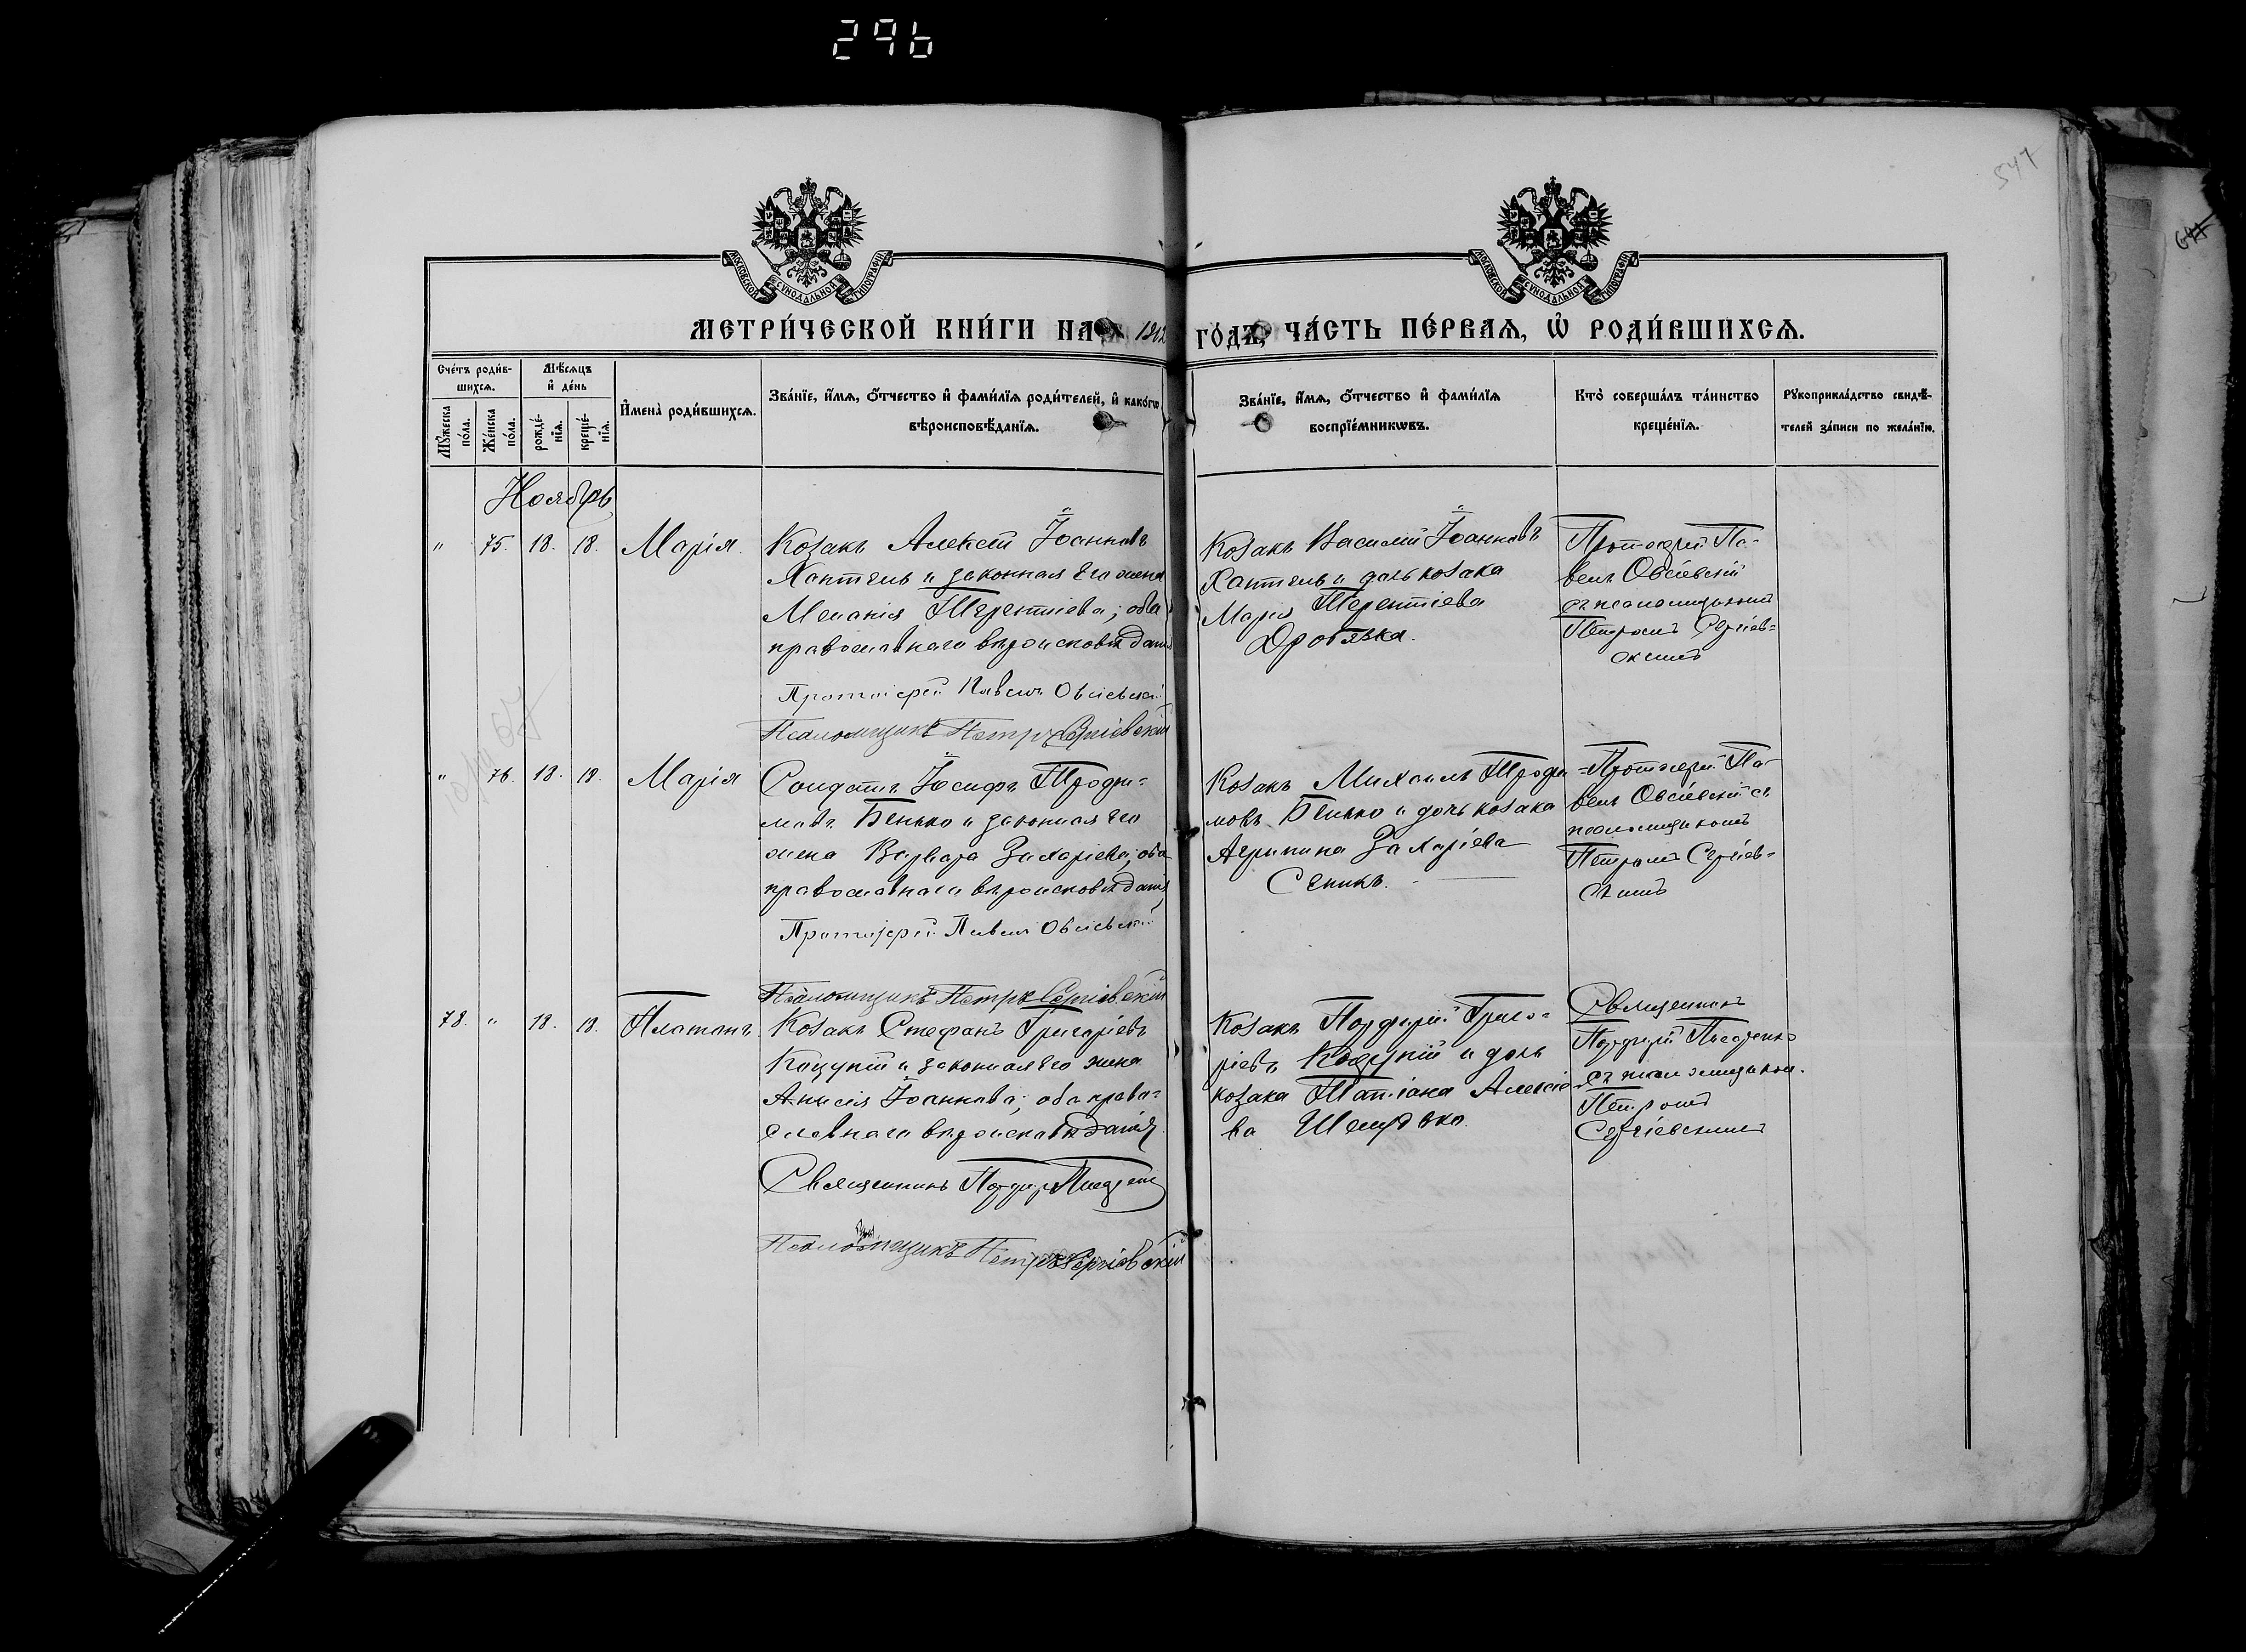 296
547
МОСКОВСКОЙ СУНОДАЛЬНОЙ ТИПОГРАФІИ
МОСКОВСКОЙ СУНОДАЛЬНОЙ ТИПОГРАФІИ
МЕТРИ́ЧЕСКОЙ КНИ́ГИ НА 1912 ГО́ДЪ, ЧА́СТЬ ПЕ́РВАЯ, Ѡ҆ РОДИ́ВШИХСЯ.
Сче́тъ роди́в-
шихся.
Мѣсяцъ
и҆ де́нь
Мꙋжеска по́ла.
Же́нска по́ла.
рожде́-
нїя.
креще́-
нїя.
И҆мена̀ роди́вшихся.
Зва́нїе, и҆́мя, ѻ҆́тчество и҆ фами́лїя роди́телей, и҆ како́гѡ
вѣроисповѣ́данїя.
Зва́нїе, и҆́мя, ѻ҆́тчество и҆ фами́лїя
воспрїе́мникѡвъ.
Кто̀ соверша́лъ та́инство
креще́нїя.
Рꙋкоприкла́дство свидѣ́-
телей за́писи по жела́нїю.
Ноябрь
" 75. 18. 18. Марія.
Козакъ Алексѣй Іоанновъ
Хантиль и законная его жена
Меланія Терентіева; оба
православнаго вѣроисповѣданія
Протоіерей Павелъ Овсіевскій
Псаломщикъ Петръ Сергіевскій
Козакъ Василій Іоанновъ
Хантиль и дочь козака
Марія Терентіева
Дробязка.
Протоіерей Па-
велъ Овсіевскій
съ псаломщикомъ
Петромъ Сергіев-
скимъ
" 76. 18. 18. Марія
Солдатъ Іосифъ Трофи-
мовъ Бенько и законная его
жена Варвара Захаріева; оба
православнаго вѣроисповѣданія
Протоіерей Павелъ Овсіевскій
Псаломщикъ Петръ Сергіевскій
Козакъ Михаилъ Трофи-
мовъ Бенько и дочь козака
Агрипина Захаріева
Сеникъ.
Протоіерей Па-
велъ Овсіевскій съ
псаломщикомъ
Петромъ Сергіев-
скимъ
78. " 18. 18. Платонъ.
Козакъ Стефанъ Григоріевъ
Коцупій и законная его жена
Анисія Іоаннова; оба право-
славнаго вѣроисповѣданія.
Священникъ Порфир
Псаломщикъ Петръ Сергіевскій
Козакъ Порфирій Григо-
ріевъ Коцупій и дочь
козака Татіана Алексіе-
ва Шелудько.
Священникъ
Порфирій
съ псаломщикомъ
Петромъ
Сергіевскимъ